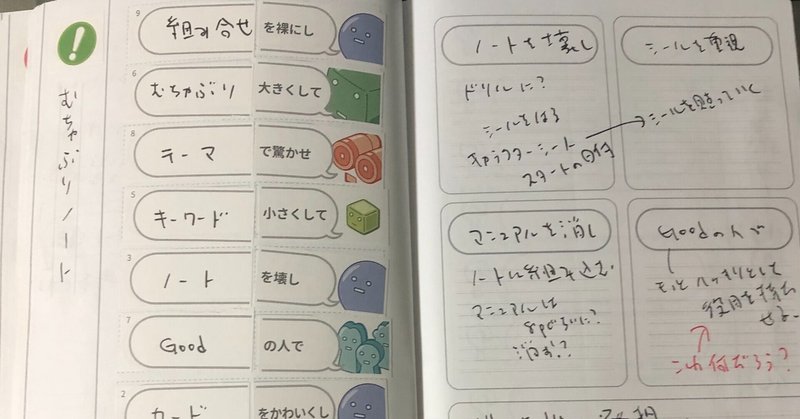 むちゃぶりノート
9
組み合せ を裸にし
6
むちゃぶり 大きくして
8
テーマ で驚かせ
5
キーワード 小さくして
3
ノート を壊し
7
Good の人で
2
カード をかわいくし
ノートを壊し
ドリルに?
シールをはる
キャラクターシート
スタートの日付
シールを重視
シールを貼っていく
マニュアルを消し
ノートに組み込む
マニュアルは
8pぐらいに?
消す?
Goodの人で
もっとハッキリとして
役目を持た
せる
これ何だろう?